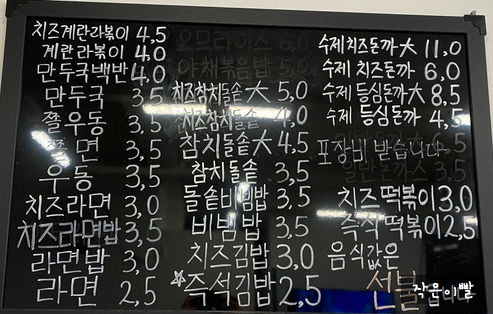 치즈계란라볶이 4,5
계란라볶이 4,0
만두국백반 4,0
만두국 3,5
쫄우동 3,5
쫄면 3,5
우동 3,5
치즈라면 3,0
치즈라면밥 3,5
라면밥 3,0
라면 2,5
오므라이스 5,0
야채볶음밥 5,0
치즈참치돌솥大 5,0
치즈참치돌솥 4,0
참치돌솥大 4,5
참치돌솥 3,5
돌솥비빔밥 3,5
비빔밥 3,5
치즈김밥 3,0
☆즉석김밥 2,5
수제 치즈돈까大 11,0
수제 치즈돈까 6,0
수제 등심돈까大 8,5
수제 등심돈까 4,5
포장비 받습니다
치즈떡볶이 3,0
즉석떡볶이 2,5
음식값은
선불입니다
작은이빨